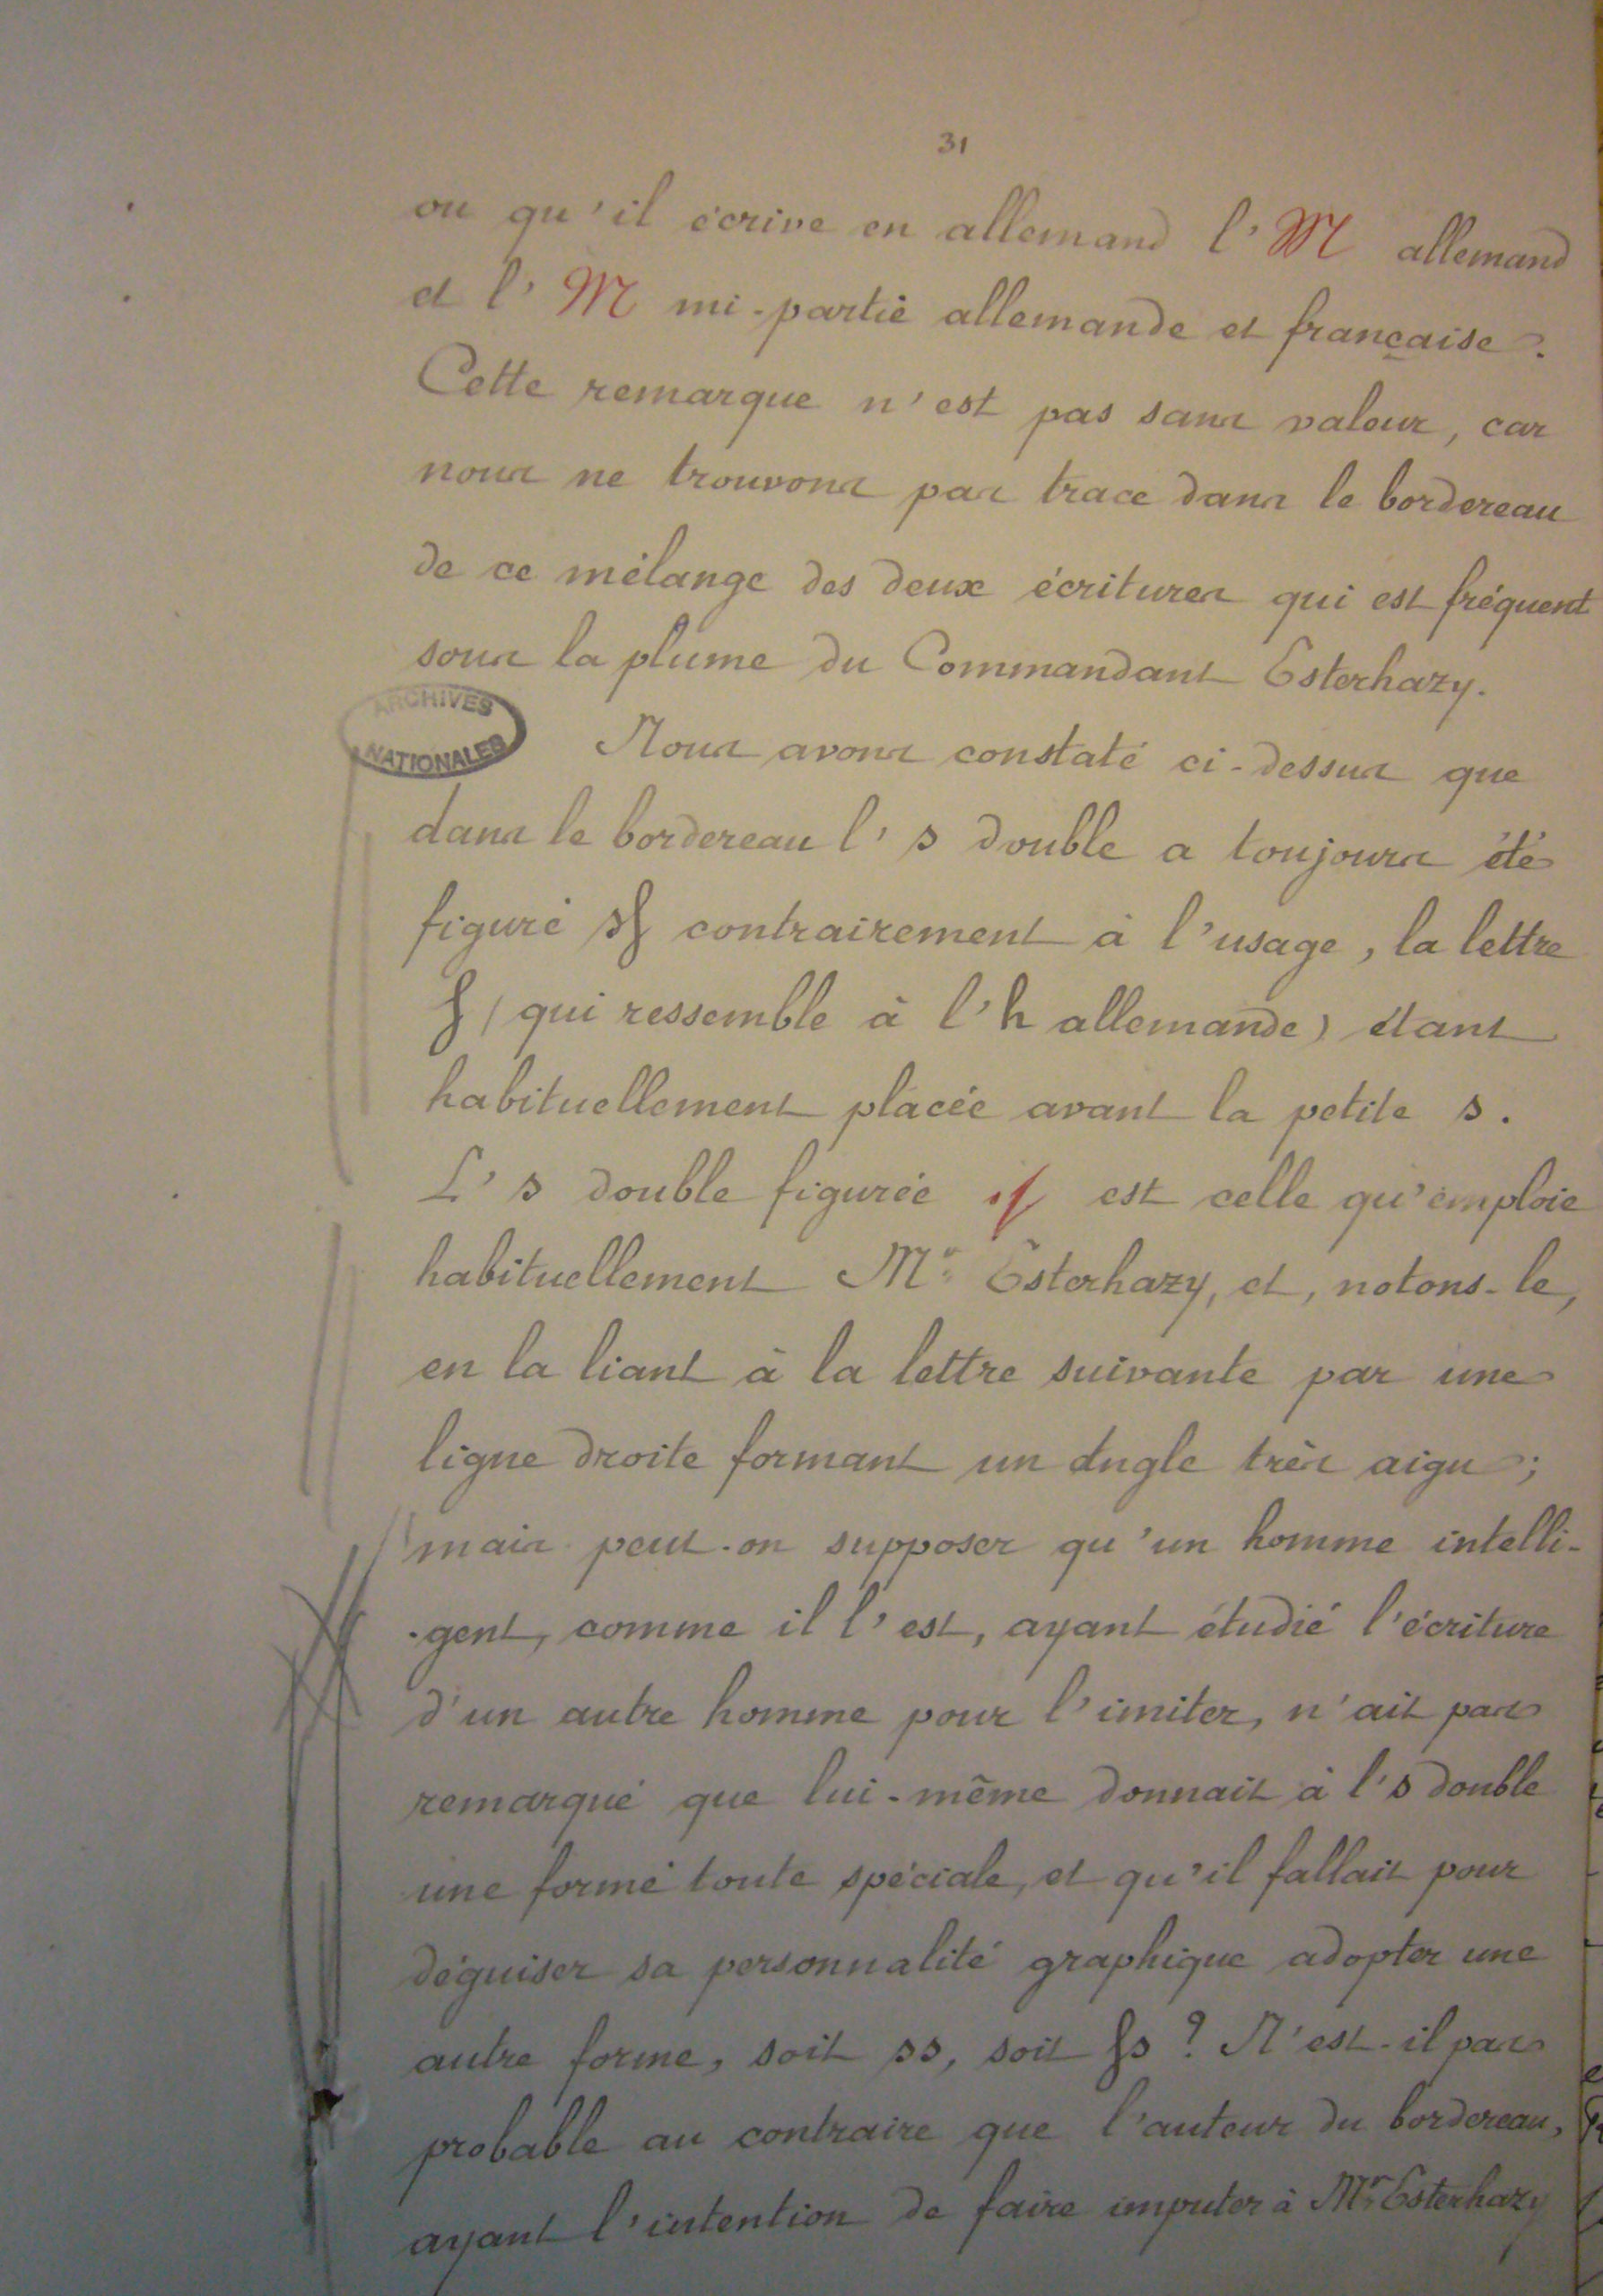 31
ou qu'il écrive en allemand l'M allemand
et l'M mi-partie allemande et française.
Cette remarque n'est pas sans valeur, car
nous ne trouvons pas trace dans le bordereau
de ce mélange des deux écritures qui est fréquent
sous la plume du Commandant Esterhazy.
ARCHIVES
NATIONALES
Nous avons constaté ci-dessus que
dans le bordereau l's double a toujours été
figuré sſ contrairement à l'usage, la lettre
ſ (qui ressemble à l'h allemande) étant
habituellement placée avant la petite s.
L's double figurée sſ est celle qu'emploie
habituellement Mr Esterhazy, et, notons-le,
en la liant à la lettre suivante par une
ligne droite formant un angle très aigu;
mais peut-on supposer qu'un homme intelli-
-gent, comme il l'est, ayant étudié l'écriture
d'un autre homme pour l'imiter, n'ait pas
remarqué que lui-même donnait à l's double
une forme toute spéciale, et qu'il fallait pour
déguiser sa personnalité graphique adopter une
autre forme, soit ss, soit ſs ? N'est-il pas
probable au contraire que l'auteur du bordereau,
ayant l'intention de faire imputer à Mr Esterhazy